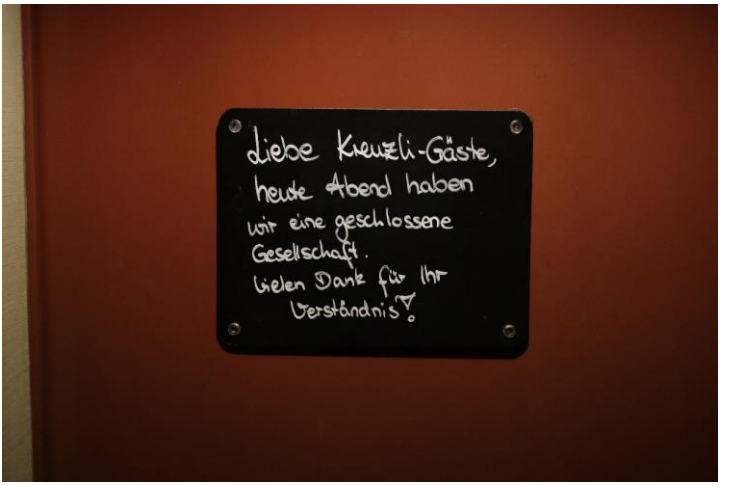 Liebe Kreuzli-Gäste,
heute Abend haben
wir eine geschlossene
Gesellschaft.
Vielen Dank für Ihr
Verständnis!